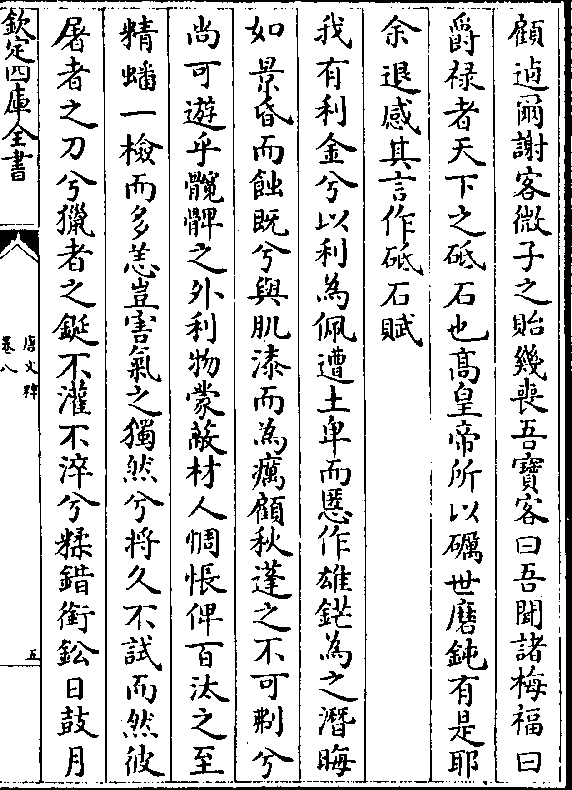 顧迺爾謝客微子之貽幾喪吾寶客曰吾聞諸梅福曰
爵祿者天下之砥石也高皇帝所以礪世磨鈍有是耶
余退感其言作砥石賦
我有利金兮以利為佩遭土卑而慝作雄鋩為之潛晦
如景昏而蝕既兮與肌漆而為癘顧秋蓬之不可剸兮
尚可遊乎髖髀之外利物蒙蔽材人惆悵俾百汰之至
精蟠一檢而多恙豈害氣之獨然兮將久不試而然彼
屠者之刀兮獵者之鋋不灌不淬兮糅錯銜鈆日鼓月
欽定四庫全書
唐文粹
卷八
五